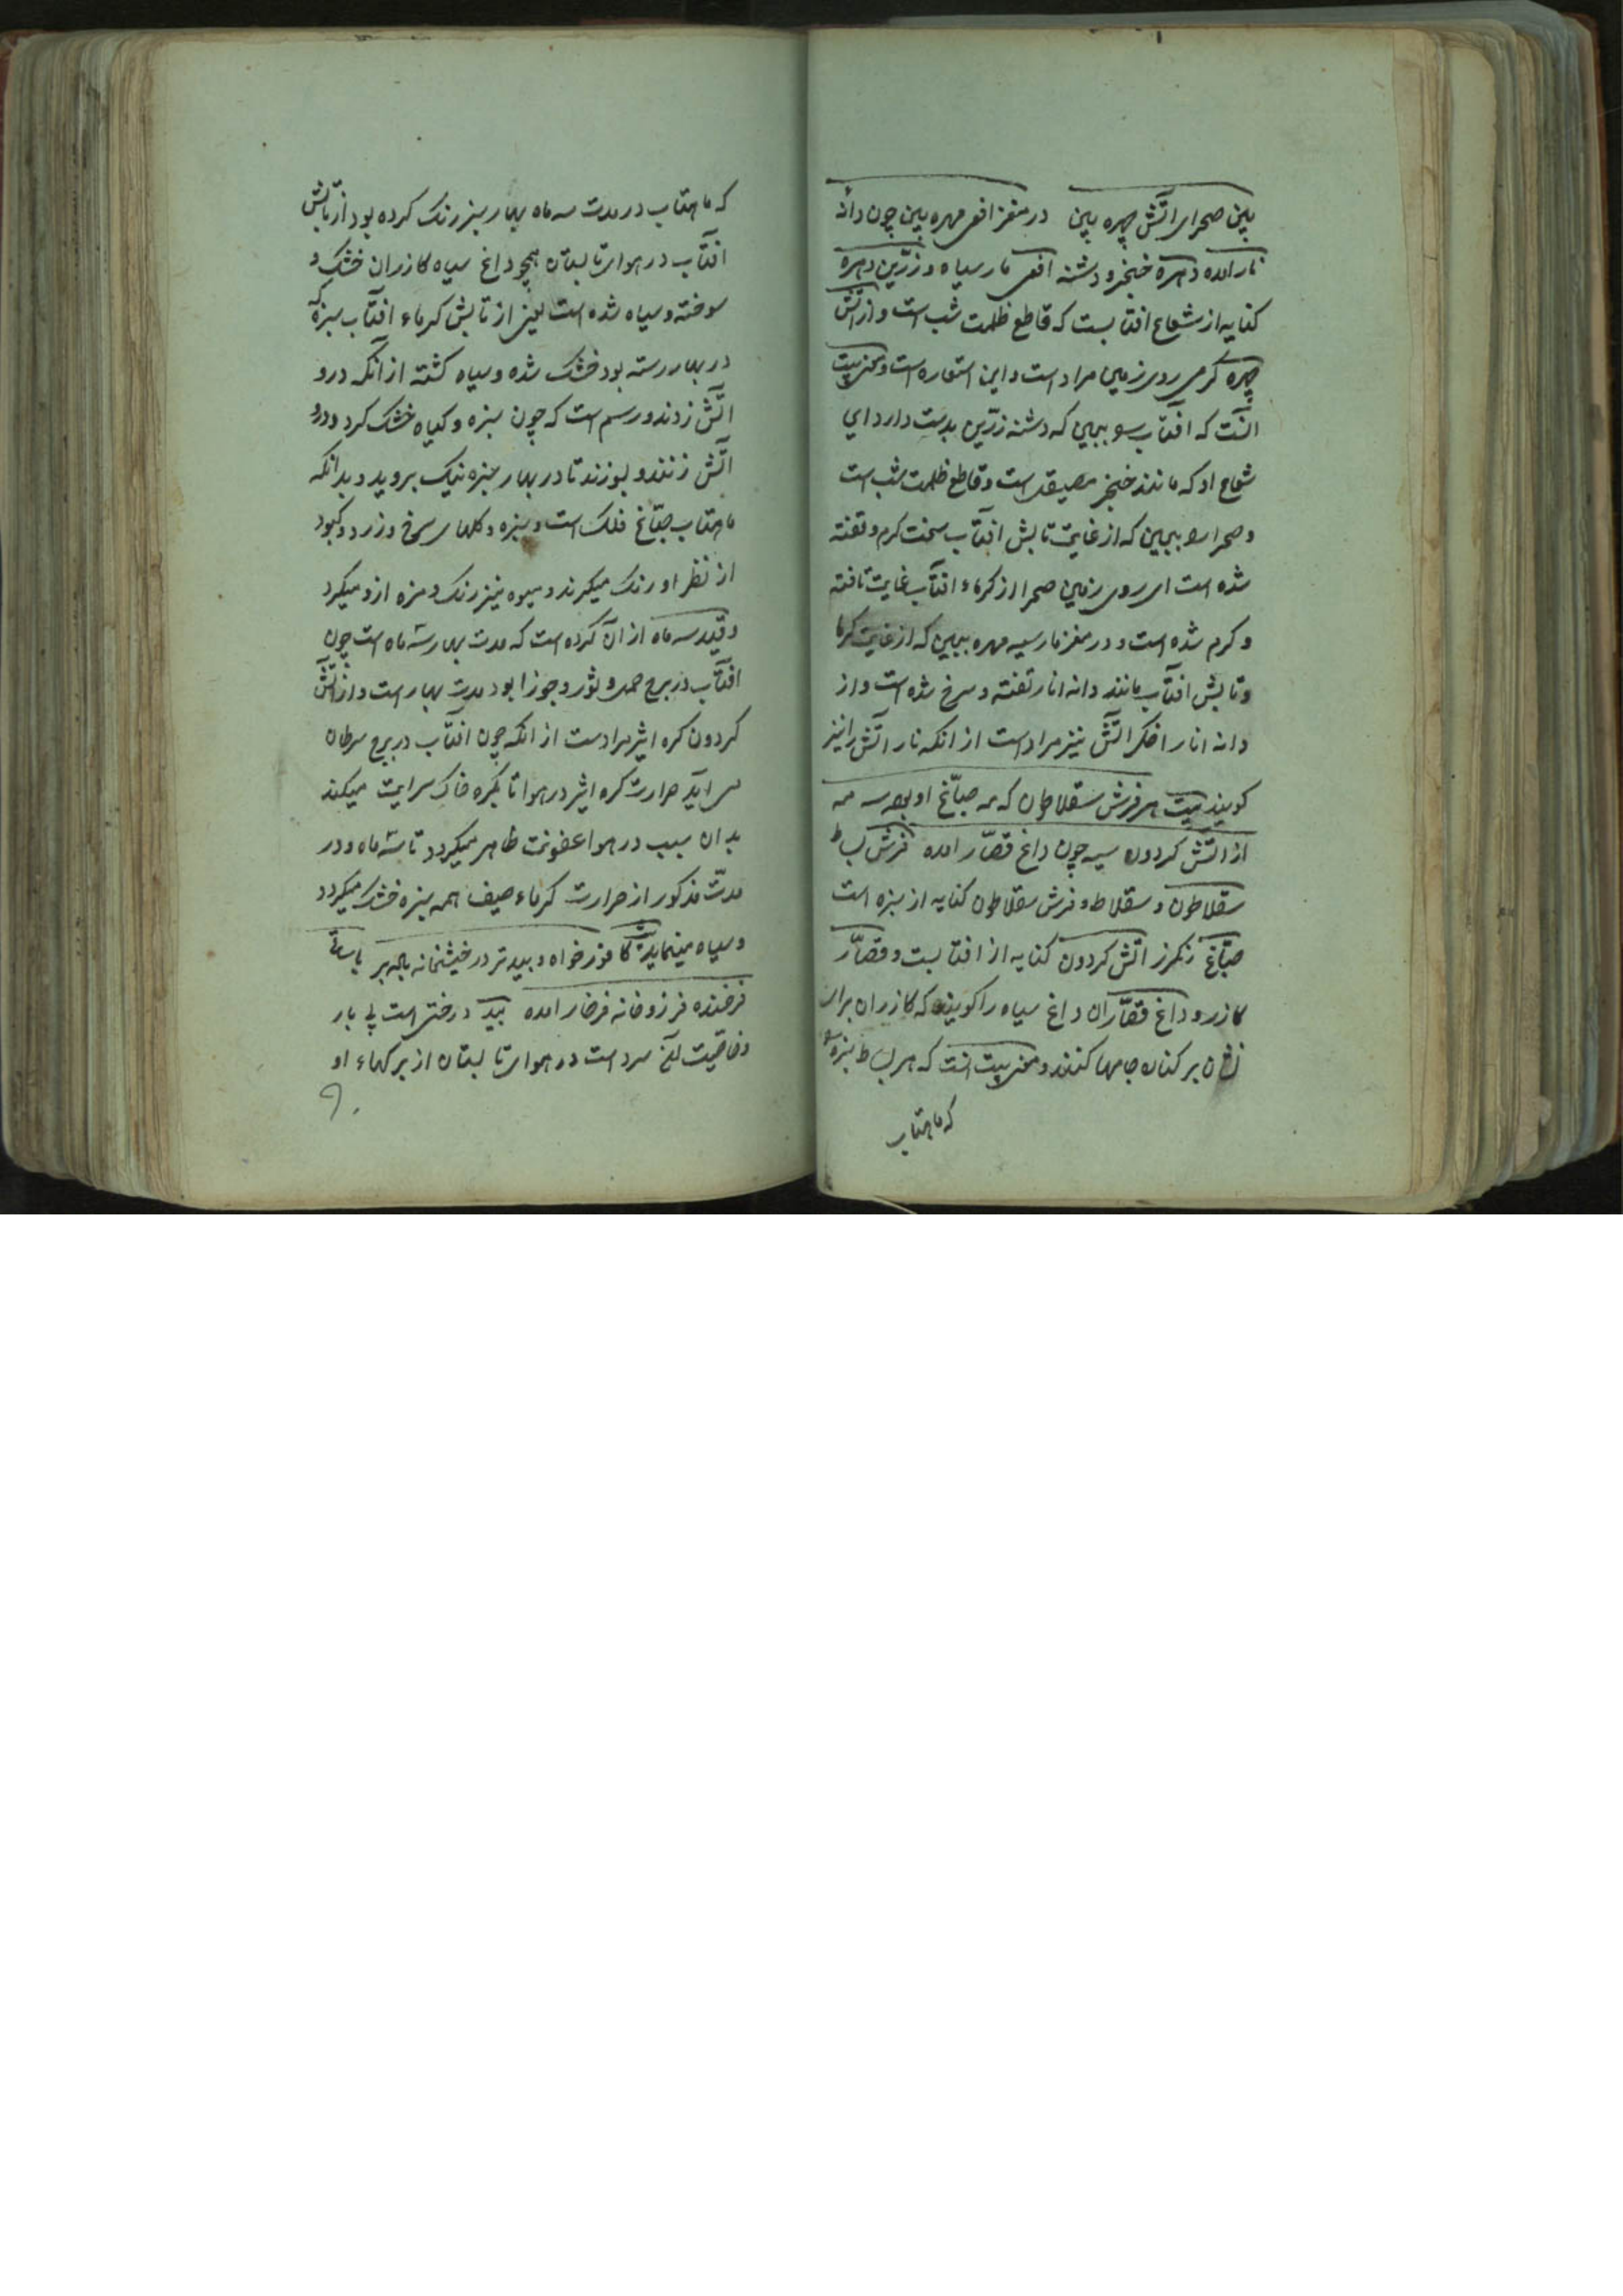 بین صحرای اتش چهره بین در مغز افعی مهره بین چون دانه
نار امده دهره خنجر و دشنه افعی مار سیاه و زرّین دهره
کنایه از شعاع افتابست که قاطع ظلمت شب است و از اتش
چهره گرمی روی زمین مراد است و این استعاره است و معنی بیت
انست که افتاب را ببین که دشنه زرّین بدست دارد ای
شعاع او که مانند خنجر مصیقل است و قاطع ظلمت شب است
و صحرا را ببین که از غایت تابش افتاب سخت کرم و تفته
شده است ای روی زمین صحرا از کرماء افتاب غایت تافته
و کرم شده است و در مغز مار سیه مهره ببین که از غایت کرما
و تابش افتاب مانند دانه انار تفته و سرخ شده است و از
دانه انار اخکر اتش نیز مراد است از انکه نار اتش را نیز
کویند بیت هر فرش سقلاطون که مه صبّاغ او بود سه مه
از اتش کردون سیه چون داغ قصّار امده فرش بساط
سقلاطون و سقلاط و فرش سقلاطون کنایه از سبزه است
صبّاغ رنکرز اتش کردون کنایه از افتابست و قصّار
کازر و داغ قصّاران داغ سیاه را کویند که کازران برای
نشان بر کناره جامها کنند و معنی بیت انست که هر بساط سبزه را
که ماهتاب
که ماهتاب در مدت سه ماه بهار سبز رنک کرده بود از تابش
افتاب در هوای تابستان همچو داغ سیاه کازران خشک و
سوخته و سیاه شده است یعنی از تابش کرماء افتاب سبزه که
در بهار رسته بود خشک شده و سیاه کشته از انکه درو
اتش زدند و رسم است که چون سبزه و کیاه خشک کرد و درو
اتش زنند و بسوزند تا در بهار سبزه نیک بروید و بدانکه
ماهتاب صبّاغ فلک است و سبزه و کلهای سرخ و زرد و کبود
از نظر او رنک میکیرند و میوه نیز رنک و مزه ازو میکیرد
و قید سه ماه از ان کرده است که مدت بهار سه ماه است چون
افتاب در برج حمل و ثور و جوزا بود مدت بهار است و از اتش
کردون کره اثیر مراد است از انکه چون افتاب در برج سرطان
می اید حرارت کره اثیر در هوا تا بکره خاک سرایت میکند
بدان سبب در هوا عفونت ظاهر میکردد تا سه ماه و در
مدّت مذکور از حرارت کرماء صیف همه سبزه خشک میکردد
و سیاه مینماید بیت کافور خواه و بید تر در خیشخانه باده بر با ساقی
فرخنده فر زو خانه فرخار امده بید درختی است بی بار
و خاصّیت آن سرد است در هوای تابستان از برکهاء او